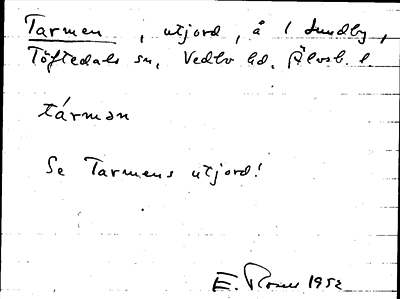 Tarmen, utjord, å 1 Sundby,
Töftedals sn, Vedbo hd, Älvsb. l.
tármən
Se Tarmens utjord!
E. 1952